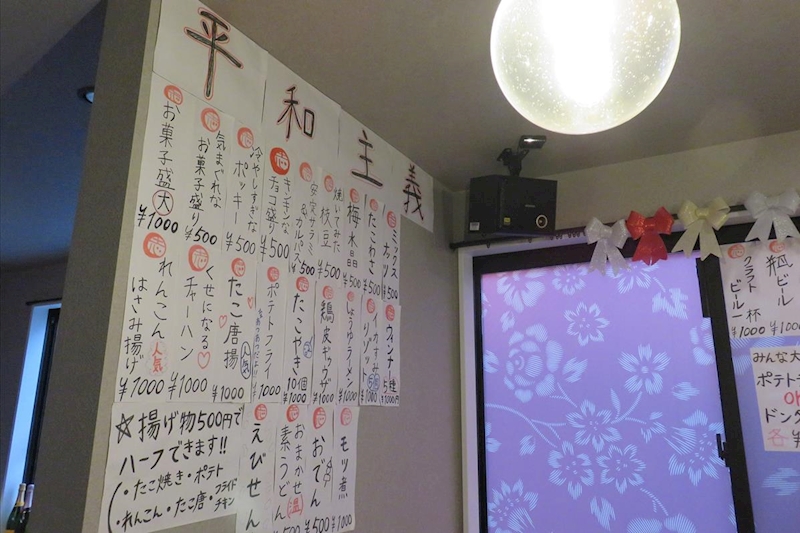 平和主義
お菓子盛 大 ¥1000
気まぐれな お菓子盛り ¥500
冷やしすぎな ポッキー ¥500
キンキンな チョコ盛り ¥500
安定サラミ &カルパス ¥500
焼いてみた 枝豆 ¥500
梅水晶 ¥500
たこわさ ¥500
ミックス ナッツ ¥500
れんこん はさみ揚げ 人気 ¥1000
くせになる♡ チャーハン ¥1000
たこ唐揚 人気 ¥1000
ポテトフライ ¥1000
たこやき 10個 ¥1000
鶏皮ギョウザ ¥1000
しょうゆラーメン ¥1000
リゾット ¥1000
ウィンナー 5種
☆揚げ物500円で
ハーフできます!!
(・たこ焼き・ポテト
・れんこん・たこ唐・フライドチキン
えびせん
おまかせ 素うどん (温) ¥500
おでん ¥500
モツ煮 ¥1000
瓶ビール ¥1000
クラフトビール一杯 ¥1000
みんな大
ポテト
OK
ドン
各